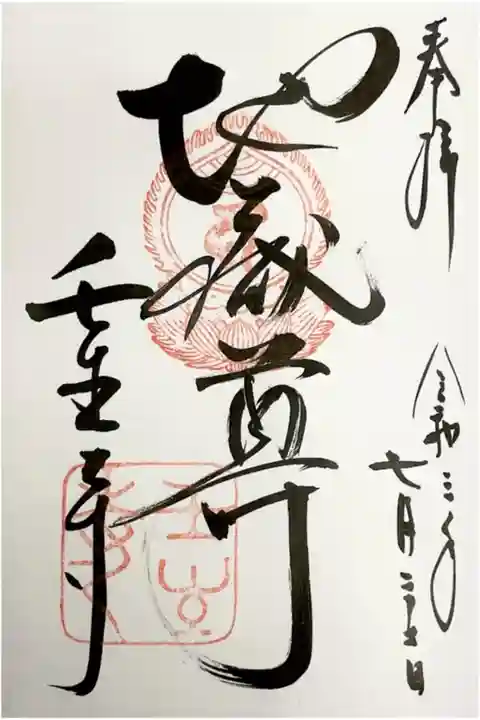 奉拝
令和三年
七月二十日
地蔵尊
壬生寺